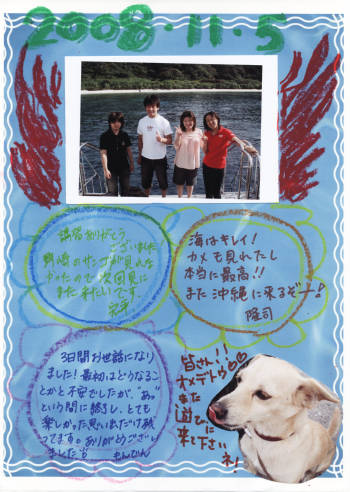 2008.11.5
講習ありがとう
ございました
野崎のサンゴが見れな
かったので次回見に
また来たいです。
海はキレイ!
カメも見れたし
本当に最高!!
また沖縄に来るぞー!
隆司
3日間お世話になり
ました!最初はどうなるこ
とかと不安でしたが、あっ
という間に過ぎ、とても
楽しかった思い出だけが残
ってます。ありがとうござい
ました
皆さん!!
オメデトウ♡♡
また
遊びに
来て下さい
ネ!